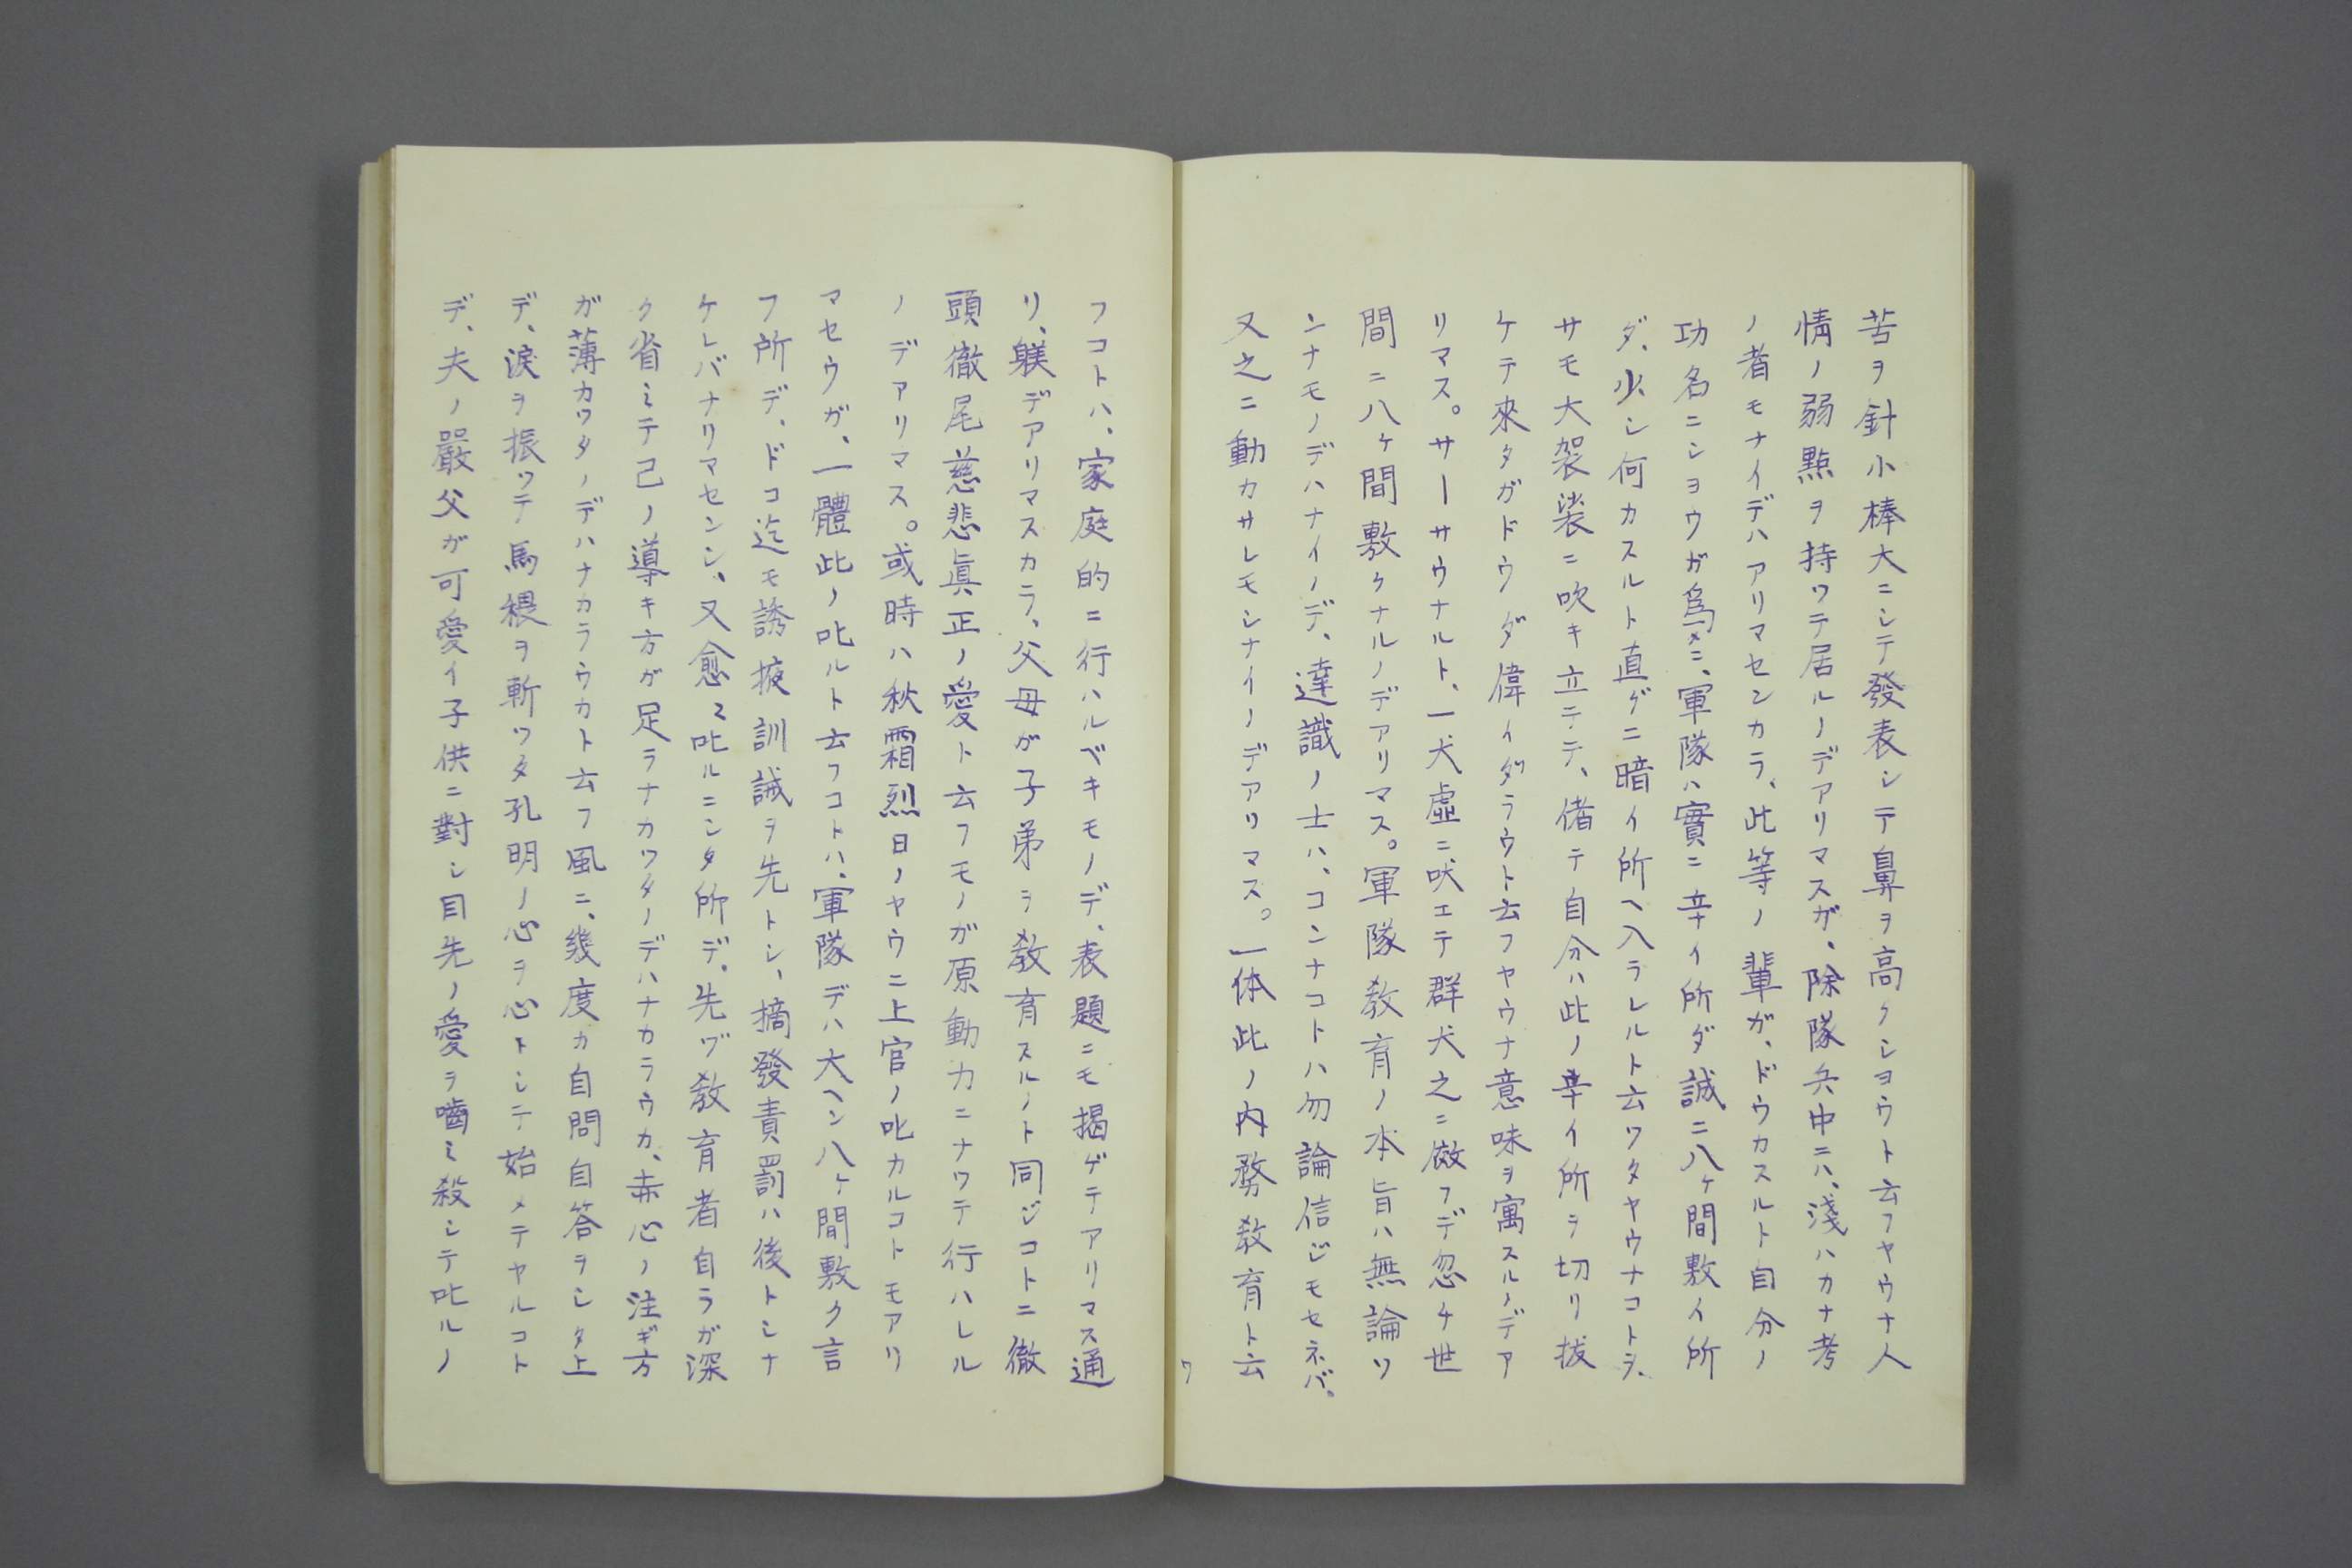 苦ヲ針小棒大ニシテ發表シテ鼻ヲ高クシヨウト云フヤウナ人
情ノ弱點ヲ持ツテ居ルノデアリマスガ、除隊兵中ニハ、淺ハカナ考
ノ者モナイデハアリマセンカラ、此等ノ輩ガ、ドウカスルト自分ノ
功名ニシヨウガ爲メニ、軍隊ハ實ニ辛イ所ダ誠ニ八ケ間敷イ所
ダ、少シ何カスルト直グニ暗イ所ヘ入ラレルト云ツタヤウナコトヲ、
サモ大袈裟ニ吹キ立テテ、偖テ自分ハ此ノ辛イ所ヲ切リ拔
ケテ來タガドウダ偉イダラウト云フヤウナ意味ヲ寓スルノデア
リマス。サーサウナルト、一犬虛ニ吠エテ群犬之ニ傚フデ忽チ世
間ニ八ケ間敷クナルノデアリマス。軍隊教育ノ本旨ハ無論ソ
ンナモノデハナイノデ、達識ノ士ハ、コンナコトハ勿論信ジモセネバ。
又之ニ動カサレモシナイノデアリマス。一体此ノ内務教育ト云
フコトハ、家庭的ニ行ハルベキモノデ、表題ニモ揭ゲテアリマス通
リ、躾デアリマスカラ、父母ガ子弟ヲ教育スルノト同ジコトニ徹
頭徹尾慈悲眞正ノ愛ト云フモノガ原動力ニナツテ行ハレル
ノデアリマス。或時ハ秋霜烈日ノヤウニ上官ノ叱カルコトモアリ
マセウガ、一體此ノ叱ルト云フコトハ、軍隊デハ大ヘン八ケ間敷ク言
フ所デ、ドコ迄モ誘掖訓誡ヲ先トシ、摘發責罰ハ後トシナ
ケレバナリマセンシ、又愈〻叱ルニシタ所デ、先ヅ教育者自ラガ深
ク省ミテ己ノ導キ方ガ足ラナカツタノデハナカラウカ、赤心ノ注ギ方
ガ薄カツタノデハナカラウカト云フ風ニ、幾度カ自問自答ヲシタ上
デ、淚ヲ振ツテ馬稷ヲ斬ツタ孔明ノ心ヲ心トシテ始メテヤルコト
デ、夫ノ嚴父ガ可愛イ子供ニ對シ目先ノ愛ヲ嚙ミ殺シテ叱ルノ